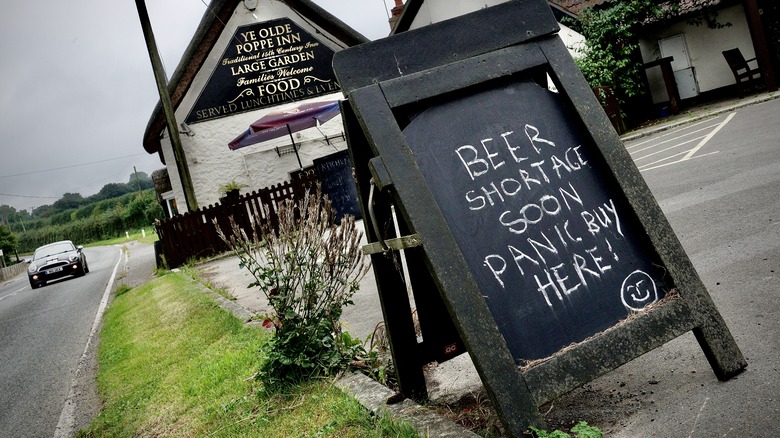 YE OLDE
POPPE INN
Traditional 15th Century Inn
LARGE GARDEN
Families Welcome
FOOD
SERVED LUNCHTIMES & EVE
BEER
SHORTAGE
SOON
PANIC BUY
HERE!